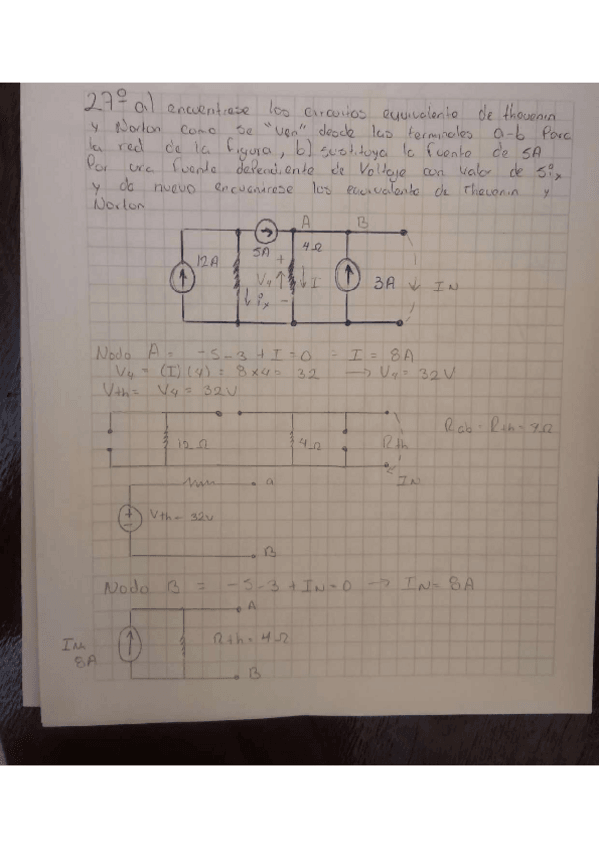 27º a) encuentrese los circuitos equivalente de thevenin
y Norton como se "ven" desde las terminales a-b Para
la red de la figura, b) sustituya la fuente de 5A
Por una fuente dependiente de Voltaje con valor de 5ix
y de nuevo encuentrese los equivalente de Thevenin y
Norton
A B
12A 5A 4Ω
+ V4 I 3A IN
ix -
Nodo A = -5-3+I=0 I = 8A
V4 = (I)(4) = 8x4 = 32 → V4 = 32V
Vth = V4 = 32V
12Ω 4Ω Rth Rab = Rth = 4Ω
IN
a
+ - Vth = 32V
B
Nodo B = -5-3+IN=0 → IN= 8A
A
IN 8A Rth = 4Ω
B